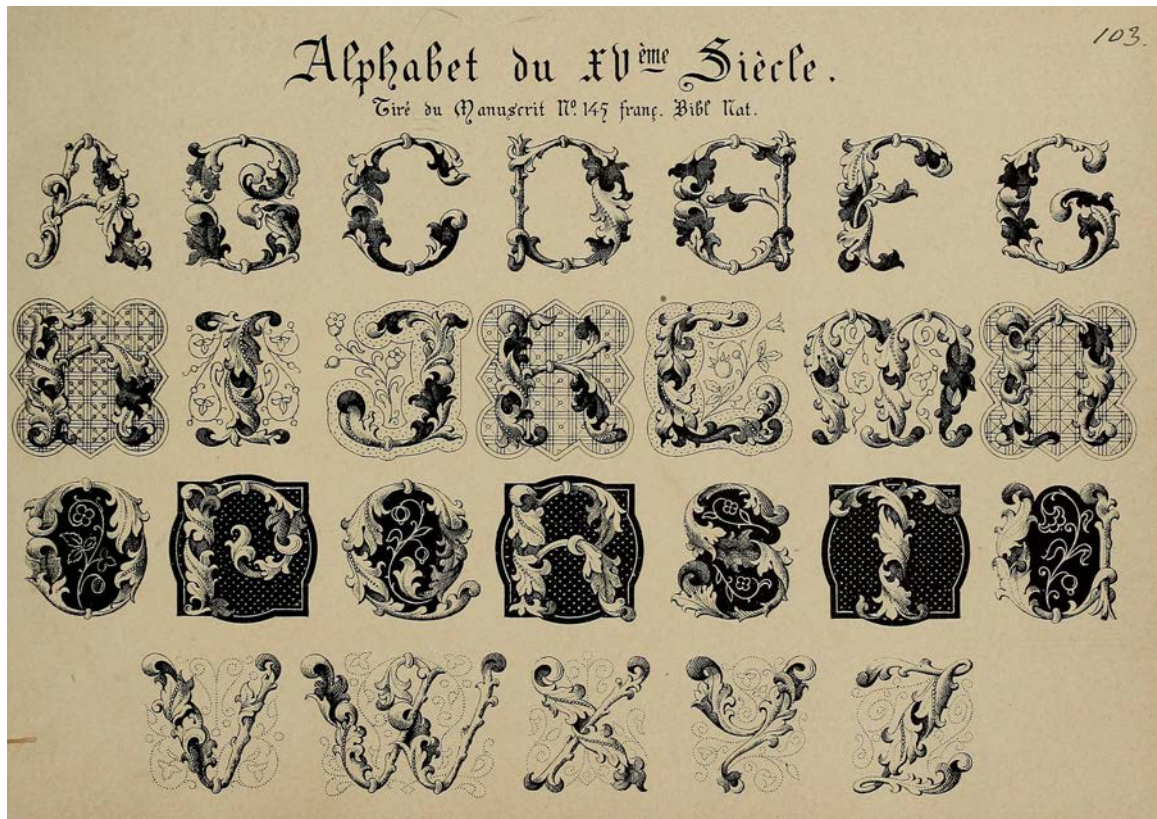 103.
Alphabet du XVème Siècle.
Tiré du Manuscrit No. 145 franç. Bibl Nat.
A B C D E F G
H I J K L M N
O P Q R S T U
V W X Y Z